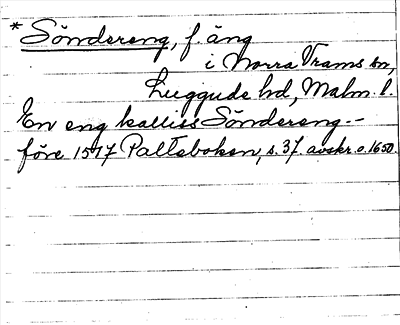 * Söndereng, f. äng
i Norra Vrams sn,
Luggude hd, Malm. l.
En eng kalliss Söndereng. -
före 1597 Paltsboken, s. 37. avskr. o. 1650.